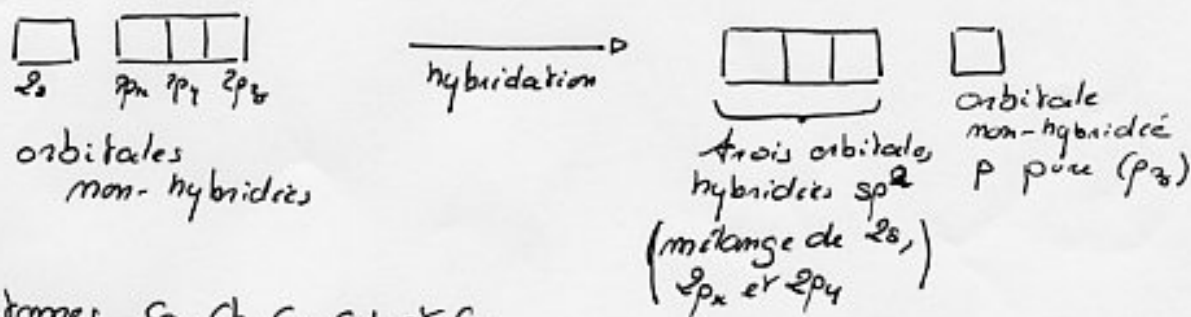 2s 2px 2py 2pz
hybridation
orbitales
non-hybridées
trois orbitales
hybridées sp2
(mélange de 2s,
2px et 2py)
orbitale
non-hybridée
p pure (pz)